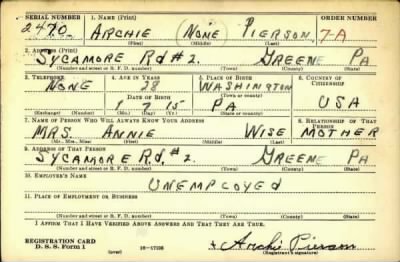 SERIAL NUMBER 1. NAME (Print) ORDER NUMBER
2470 ARCHIE NONE PIERSON 7-A
(First) (Middle) (Last)
2. ADDRESS (Print)
SYCAMORE Rd #2. GREENE PA
(Number and street or R. F. D. number) (Town) (County) (State)
3. TELEPHONE 4. AGE IN YEARS 5. PLACE OF BIRTH 6. COUNTRY OF CITIZENSHIP
NONE 28 WASHINGTON
DATE OF BIRTH (Town or county)
1 7 15 PA USA
(Exchange) (Number) (Mo.) (Day) (Yr.) (State or country)
7. NAME OF PERSON WHO WILL ALWAYS KNOW YOUR ADDRESS 8. RELATIONSHIP OF THAT PERSON
MRS. ANNIE WISE MOTHER
(Mr., Mrs., Miss) (First) (Middle) (Last)
9. ADDRESS OF THAT PERSON
SYCAMORE Rd. #2. GREENE PA
(Number and street or R. F. D. number) (Town) (County) (State)
10. EMPLOYER'S NAME
UNEMPLOYED
11. PLACE OF EMPLOYMENT OR BUSINESS
(Number and street or R. F. D. number) (Town) (County) (State)
I AFFIRM THAT I HAVE VERIFIED ABOVE ANSWERS AND THAT THEY ARE TRUE.
REGISTRATION CARD
D. S. S. Form 1 (over) Archie Pierson
(Registrant's signature)